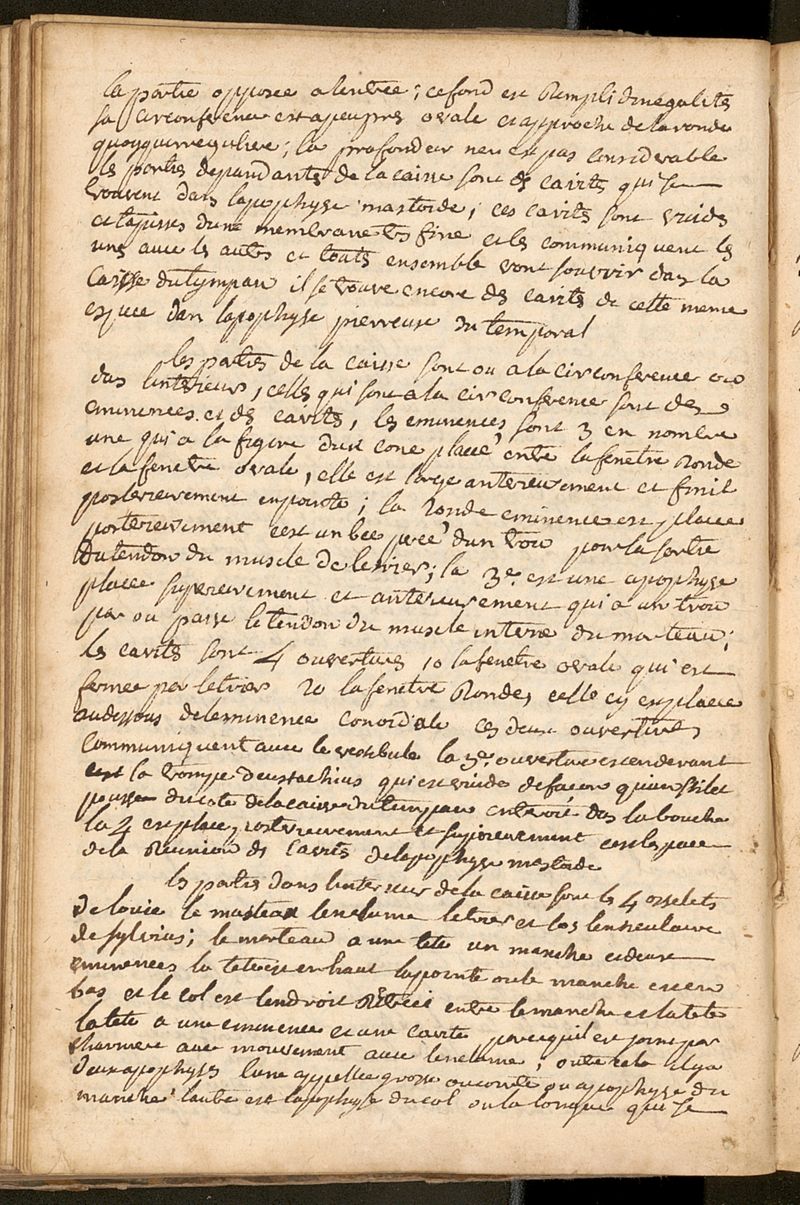 la partie opposee a lentree; ce fond est Rempli dinegalités
sa circonference est a peu pres ovale et approche de la ronde
quoyquirreguliere; la profondeur nen est pas considerable
les parties dependantes de la caisse sont des cavités qui se
trouvent dans lapophyse mastoide; ces cavités sont vuides
et tapissées dune membrane tres fine et les communiquent les
unes avec les autres et toutes ensemble vont souvrir dans la
Caisse du tympan il se trouve encore des cavités de cette meme
espece dans lapophyse pierreuse du temporal
les parties de la caisse sont ou a la circonference ou
dans linterieur, celles qui sont a la circonference sont des
eminences et des cavités, les eminences sont 3 en nombre
une qui a la figure dun cone placé entre la fenetre Ronde
et la fenetre ovale, elle est large anterieurement et finit
posterieurement en pointe; la 2onde eminence est placee
posterieurement cest un bec percé dun trou pour la sortie
du tendon du muscle de letrier; la 3e. est une apophyse
placee superieurement et anterieurement qui a un trou
par ou passe le tendon du muscle interne du marteau;
les cavités sont 4 ouvertures 1o la fenetre ovale qui est
fermée par letrier 2o la fenetre Ronde, celle cy est placee
au dessous de leminence conoidale ces deux ouvertures
Communiquent avec le vestibule la 3e. ouverture est en devant
cest la trompe deustachius qui est vuide de facon quun stilet
poussé du coté de la caisse du tympan entre dans la bouche
la 4 est placé posterieurement et superieurement cest lespace
de la Reunion des Cavités de lapophyse mastoide
les parties dans linterieur de la caisse sont les 4 osselets
de louie le marteau lenclume letrier et los lenticulaire
de sylvius; le marteau a une tete un manche et deux
eminences la tete est en haut la pointe ou le manche est en
bas et le col est lendroit Retreci entre le manche et la tete
la tete a une eminence et une cavité parcequil est joint par
charniere avec mouvement avec lenclume; outre cela il y a
deux apophyses lune appellee grosse ou courte ou apophyse du
manche lautre est lapophyse du col ou la longue qui se